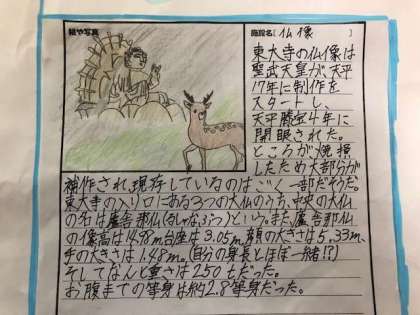 絵や写真
施設名〔仏像 〕
東大寺の仏像は
聖武天皇が、天平
17年に制作を
スタートし、
天平勝宝4年に
開眼された。
ところが、焼損
したため大部分が
補作され、現存しているのは、ごく一部だそうだ。
東大寺の入り口にある3つの大仏のうち、中央の大仏
の名は盧舎那仏(るしゃなぶつ)という。また、盧舎那仏
の像高は14.98m、台座は3.05m、顔の大きさは5.33m、
手の大きさは1.48m。(自分の身長とほぼ一緒!?)
そしてなんと重さは250tだった。
お腹までの等身は約2.8等身だった。